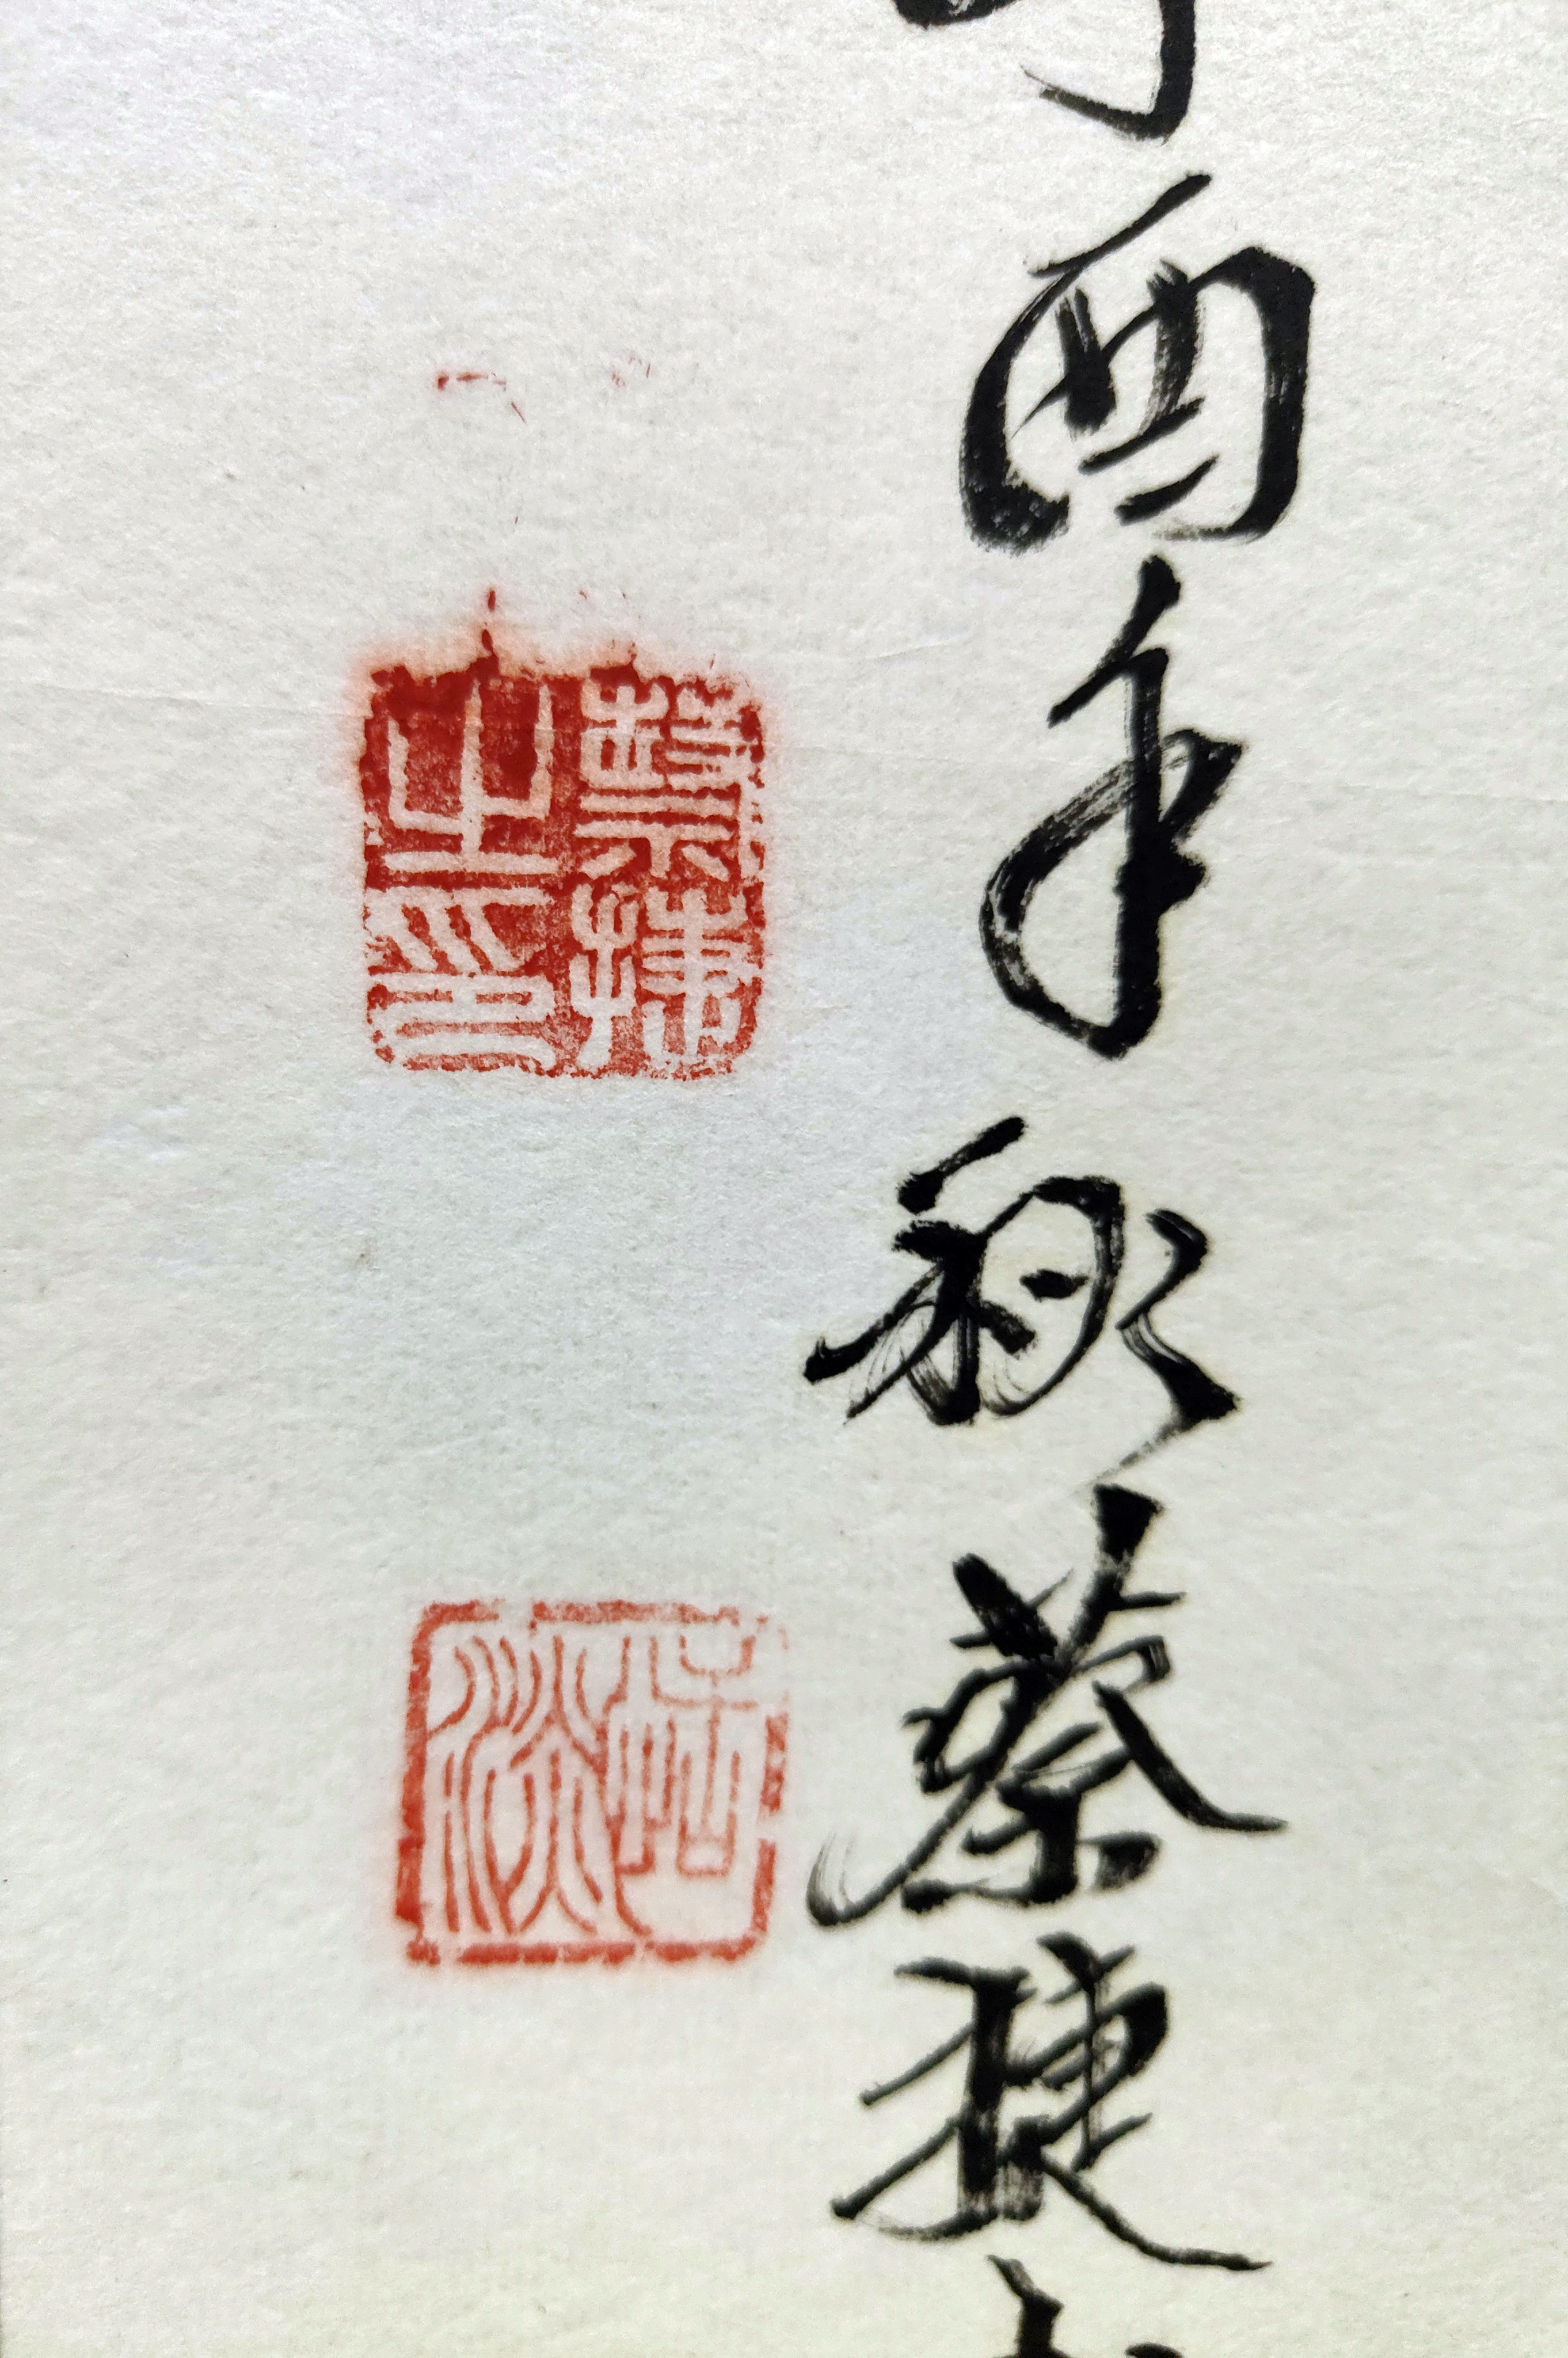 酉年秋蔡捷
蔡捷之印